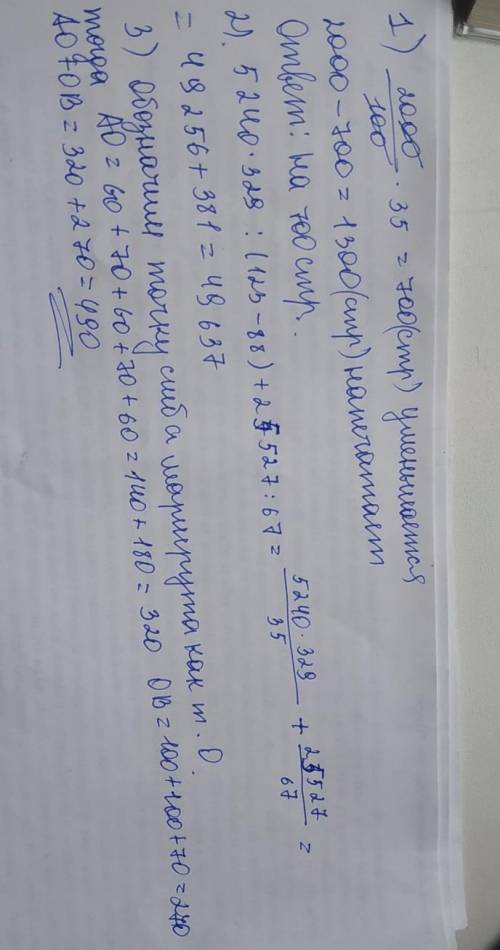 1) 2000/100 · 35 = 700(стр) уменьшается
2000 - 700 = 1300(стр) напечатает
Ответ: на 700 стр.
2). 5240·329 : (123-88) + 25527:67 = 5240·329/35 + 25527/67 =
= 49256 + 381 = 49637
3) Обозначим точку сгиба маршрута как т. О.
тогда
АО = 60 + 70 + 60 + 70 + 60 = 140 + 180 = 320 ОВ = 100+100+70=270
АО+ОВ = 320 + 270 = 490